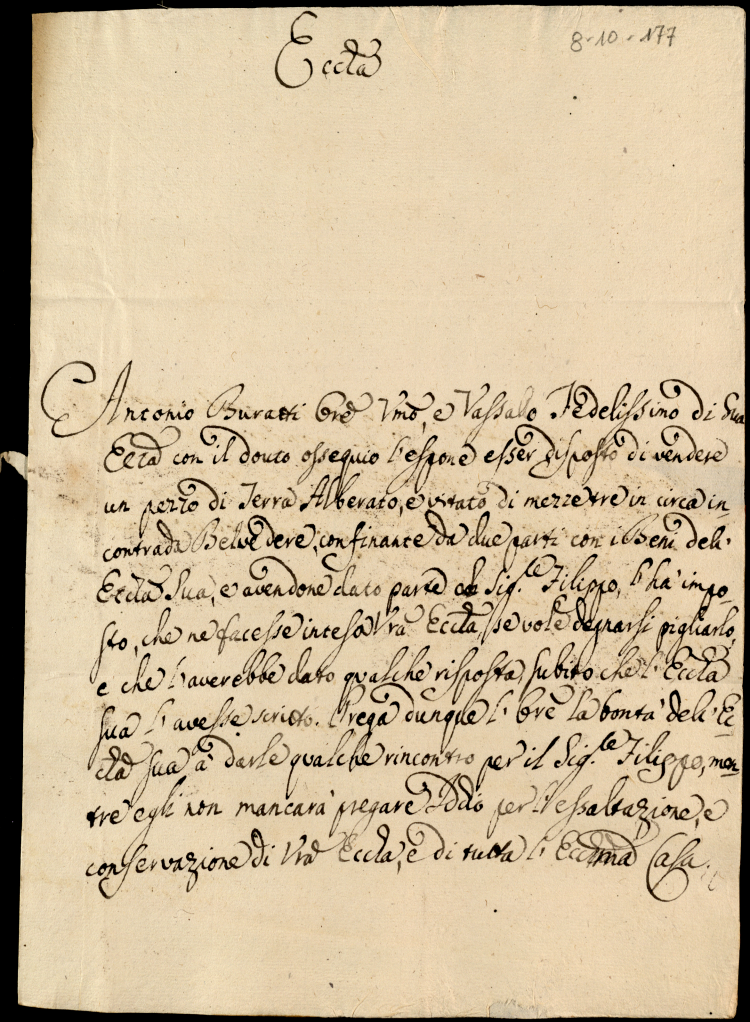 Eccla
8-10-177
Antonio Buratti Ore Umo, e Vassalo Fedelissimo di Sua
Eccla con il douto ossequio l'espone esser disposto di vendere
un pezzo di Terra Alberato, e vitato di mezzetre in circa in
contrada Belvedere, confinante da due parti con i Beni del'
Eccla Sua, e avendone dato parte al Sig.le Filippo, l'ha impo-
sto, che ne facesse intesa Vra Eccla, se vole degnarsi pigliarlo,
e che l'averebbe dato qualche risposta, subito che l'Eccla
sua l'avesse scritto. Prega dunque l'Ore la bontà del'Ec-
cla sua à darle qualche rincontro per il Sig.le Filippo, men-
tre egli non mancarà pregare Iddio per l'essaltazione, e
conservazione di Vra Eccla, e di tutta l'Eccma Casa.